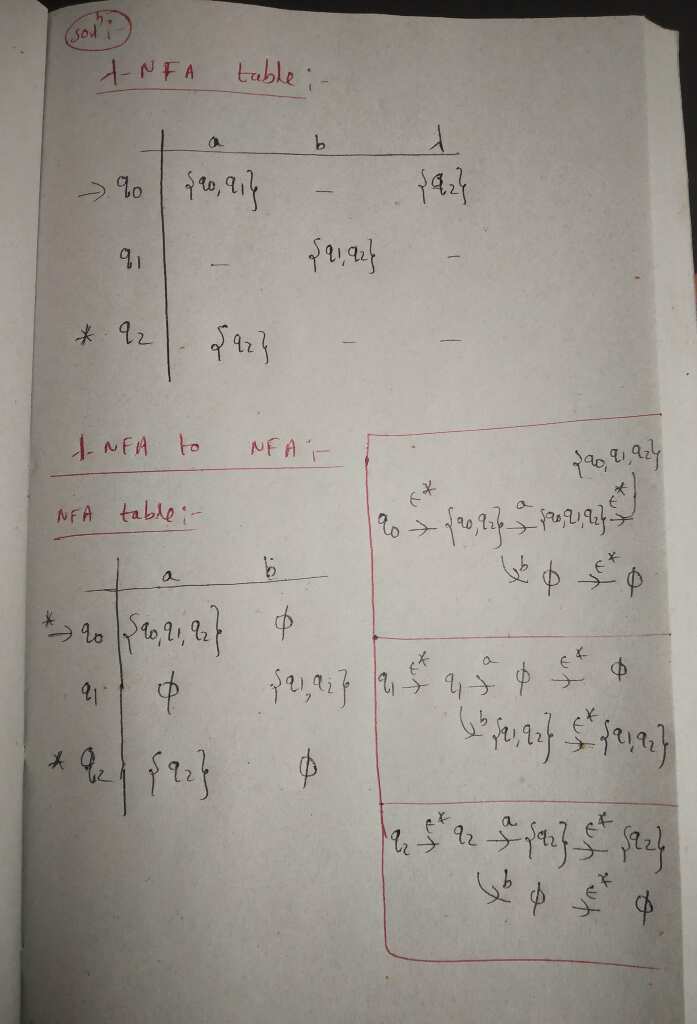 solⁿ:-
λ-NFA table:-
a b λ
→ q0 {q0,q1} – {q2}
q1 – {q1,q2} –
* q2 {q2} – –
λ-NFA to NFA:-
NFA table:-
a b
*→ q0 {q0,q1,q2} ϕ
q1 ϕ {q1,q2}
* q2 {q2} ϕ
q0 –ϵ*→ {q0,q2} –a→ {q0,q1,q2} –ϵ*→ {q0,q1,q2}
↳b ϕ –ϵ*→ ϕ
q1 –ϵ*→ q1 –a→ ϕ –ϵ*→ ϕ
↳b {q1,q2} –ϵ*→ {q1,q2}
q2 –ϵ*→ q2 –a→ {q2} –ϵ*→ {q2}
↳b ϕ –ϵ*→ ϕ